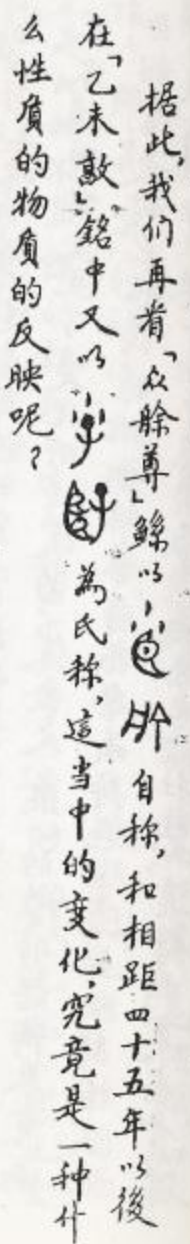 据此，我们再看「众艅尊」鲧以自称，和相距四十五年以後
在「乙未敦」銘中又以為氏称，這当中的变化，究竟是一种什
么性质的物质的反映呢？